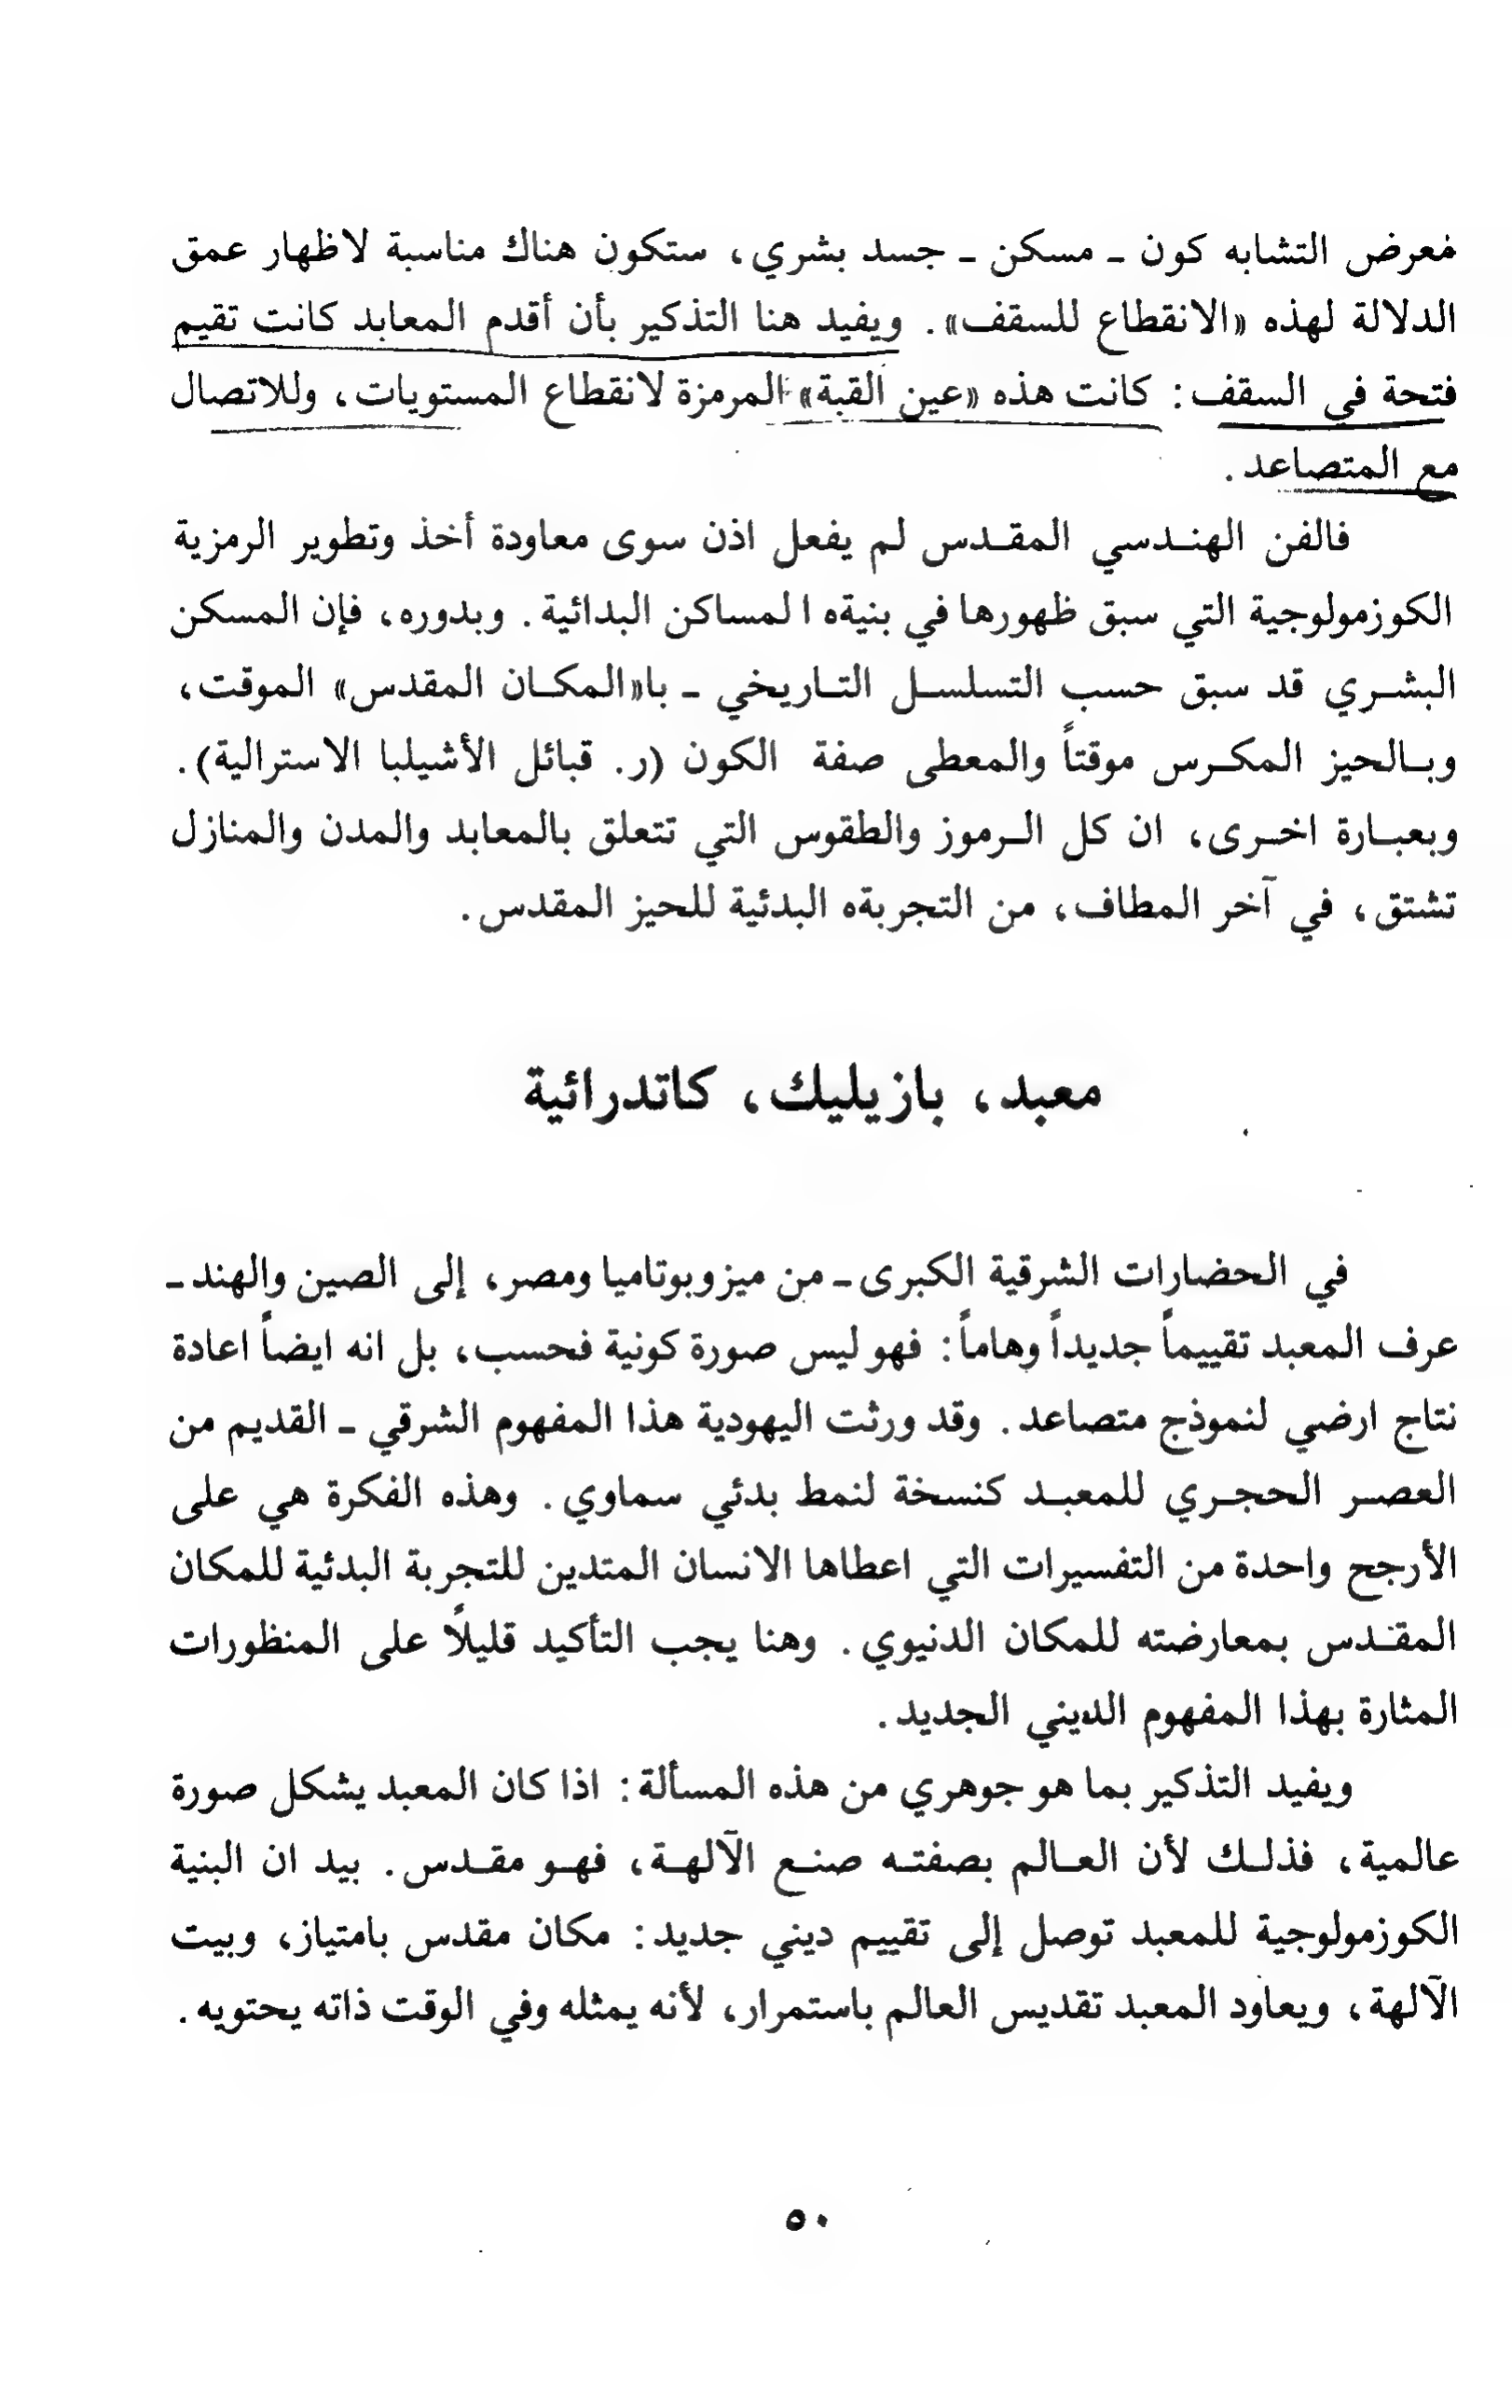 معرض التشابه كون ـ مسكن ـ جسد بشري، ستكون هناك مناسبة لاظهار عمق
الدلالة لهذه «الانقطاع للسقف». ويفيد هنا التذكير بأن أقدم المعابد كانت تقيم
فتحة في السقف: كانت هذه «عين القبة» المرمزة لانقطاع المستويات، وللاتصال
مع المتصاعد.
فالفن الهندسي المقدس لم يفعل اذن سوى معاودة أخذ وتطوير الرمزية
الكوزمولوجية التي سبق ظهورها في بنيةه ا لمساكن البدائية. وبدوره، فإن المسكن
البشري قد سبق حسب التسلسل التاريخي ـ با«المكان المقدس» الموقت،
وبالحيز المكرس موقتاً والمعطى صفة الكون (ر. قبائل الأشيلبا الاسترالية).
وبعبارة اخرى، ان كل الرموز والطقوس التي تتعلق بالمعابد والمدن والمنازل
تشتق، في آخر المطاف، من التجربةه البدئية للحيز المقدس.
معبد، بازيليك، كاتدرائية
في الحضارات الشرقية الكبرى ـ من ميزوبوتاميا ومصر، إلى الصين والهند ـ
عرف المعبد تقييماً جديداً وهاماً: فهو ليس صورة كونية فحسب، بل انه ايضاً اعادة
نتاج ارضي لنموذج متصاعد. وقد ورثت اليهودية هذا المفهوم الشرقي ـ القديم من
العصر الحجري للمعبد كنسخة لنمط بدئي سماوي. وهذه الفكرة هي على
الأرجح واحدة من التفسيرات التي اعطاها الانسان المتدين للتجربة البدئية للمكان
المقدس بمعارضته للمكان الدنيوي. وهنا يجب التأكيد قليلاً على المنظورات
المثارة بهذا المفهوم الديني الجديد.
ويفيد التذكير بما هو جوهري من هذه المسألة: اذا كان المعبد يشكل صورة
عالمية، فذلك لأن العالم بصفته صنع الآلهة، فهو مقدس. بيد ان البنية
الكوزمولوجية للمعبد توصل إلى تقييم ديني جديد: مكان مقدس بامتياز، وبيت
الآلهة، ويعاود المعبد تقديس العالم باستمرار، لأنه يمثله وفي الوقت ذاته يحتويه.
٥٠